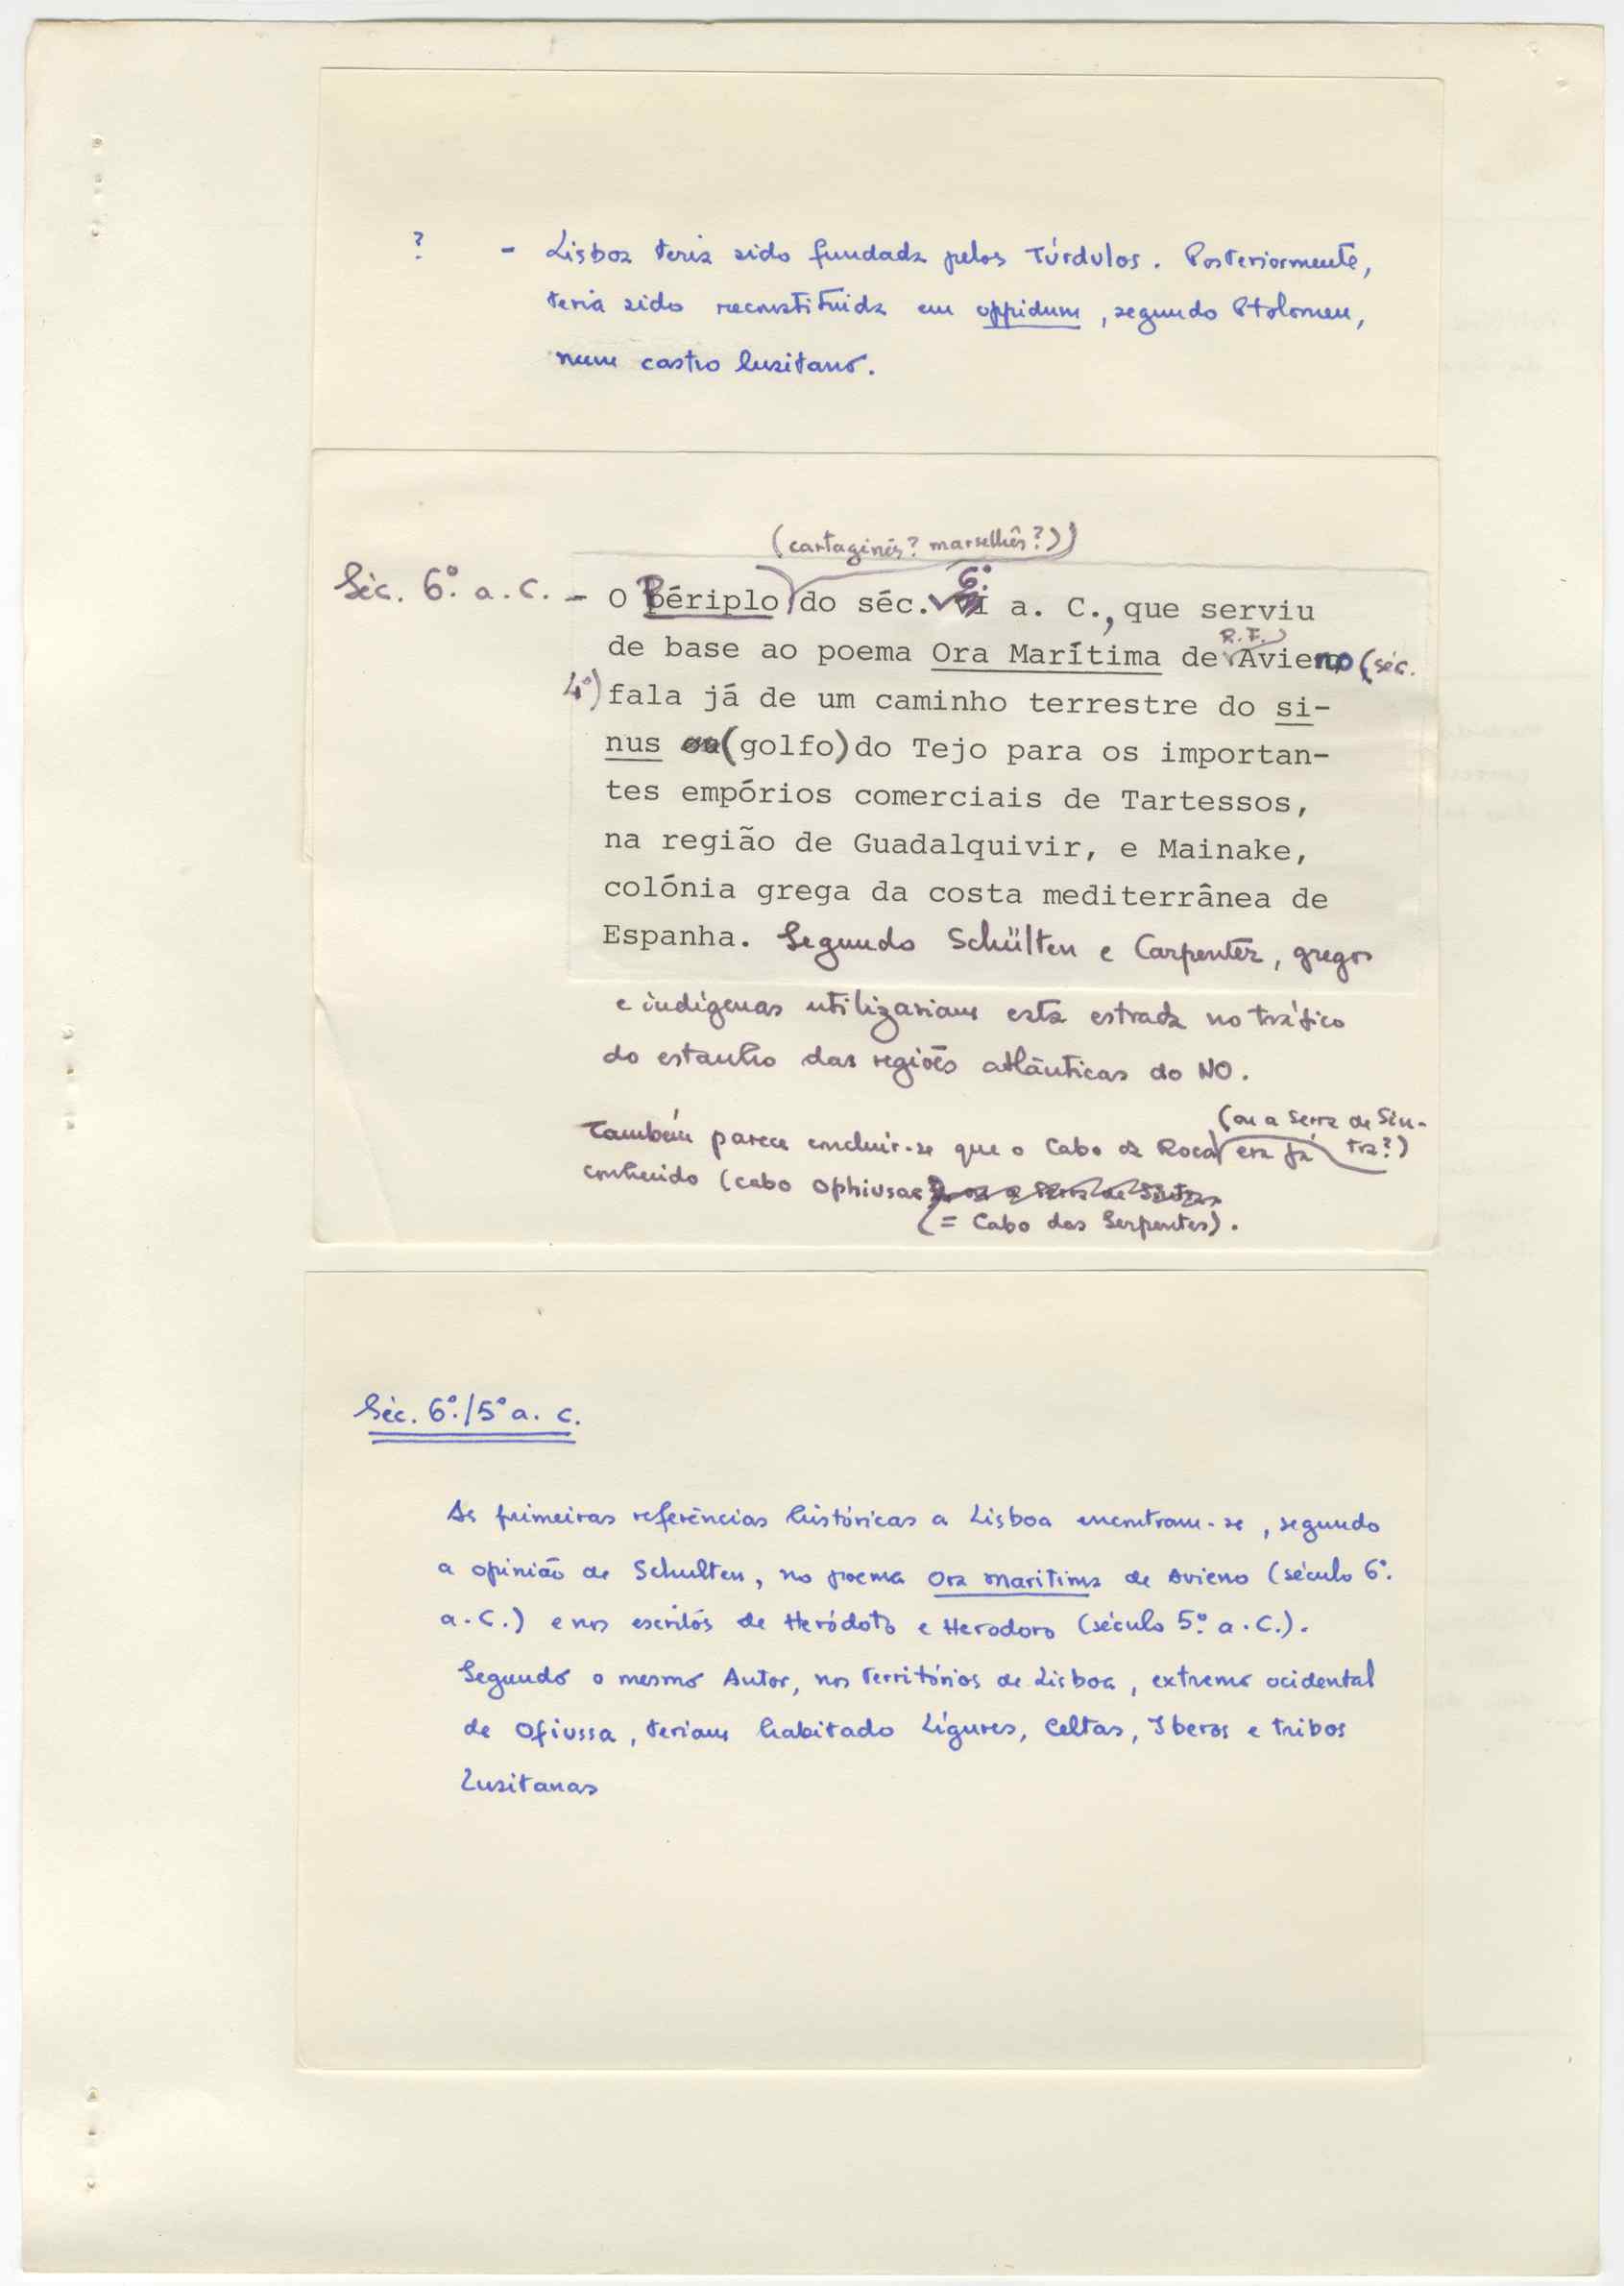 ? - Lisboa teria sido fundada pelos Túrdulos. Posteriormente,
teria sido reconstituida em oppidum, segundo Ptolomeu,
num castro lusitano.
(cartaginês? marselhês?)
Séc. 6º. a. C. - O Périplo do séc. 6º. a. C., que serviu
de base ao poema Ora Marítima de R. F. Avieno (séc.
4º) fala já de um caminho terrestre do si-
nus (golfo) do Tejo para os importan-
tes empórios comerciais de Tartessos,
na região de Guadalquivir, e Mainake,
colónia grega da costa mediterrânea de
Espanha. Segundo Schülten e Carpenter, gregos
e indígenas utilizariam esta estrada no tráfico
do estanho das regiões atlânticas do NO.
(ou a Serra de Sin-
Também parece concluir-se que o Cabo da Roca era já tra?)
conhecido (cabo Ophiusae
(= Cabo das Serpentes).
Séc. 6º./5º a. C.
As primeiras referências históricas a Lisboa encontram-se, segundo
a opinião de Schulten, no poema Ora maritima de Avieno (século 6º.
a. C.) e nos escritos de Heródoto e Herodoro (século 5º. a. C.).
Segundo o mesmo Autor, nos territórios de Lisboa, extremo ocidental
de Ofiussa, teriam habitado Lígures, Celtas, Iberos e tribos
Lusitanas